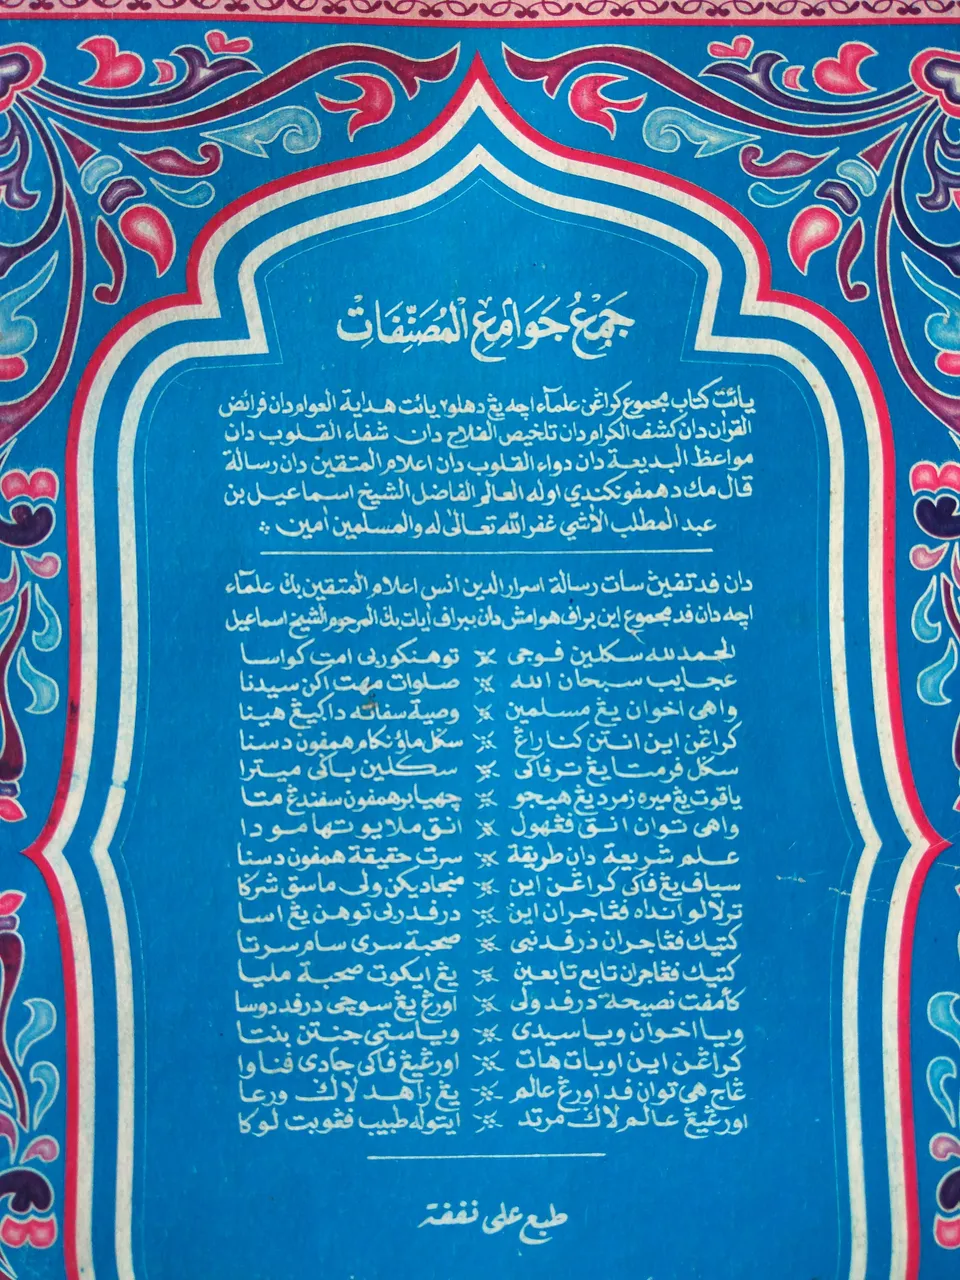 جَمْعُ جَوَامِعِ الْمُصَنَّفَاتْ
يائت كتاب مجموع كراڠن علماء اچه يڠ دهلو٢ يائت هداية العوام دان فرائض
القران دان كشف الكرام دان تلخيص الفلاح دان شفاء القلوب دان
مواعظ البديعة دان دواء القلوب دان اعلام المتقين دان رسالة
قال مك دهمفونكندي اوله العالم الفاضل الشيخ اسماعيل بن
عبد المطلب الأشي غفر الله تعالى له والمسلمين امين
دان فد تفيڽ سات رسالة اسرار الدين انس اعلام المتقين بك علماء
اچه دان فد مجموع اين براف هوامش دان ببراف ايات بك المرحوم الشيخ اسماعيل
الحمد لله سكلين فوجي ※ توهنكو ربي امت كواسا
عجايب سبحان الله ※ صلوات مهت اكن سيدنا
واهي اخوان يڠ مسلمين ※ وصية سفاته داكيڠ هينا
كراڠن اين انتن كناراڠ ※ سكل ماؤ نكام همفون دسنا
سكل فرمتا يڠ ترفاكي ※ سكلين باكي ميترا
ياقوت يڠ ميره زمرد يڠ هيجو ※ چهيا برهمفون سفندڠ متا
واهي توان انق فڠهول ※ انق ملايو تها مودا
علم شريعة دان طريقة ※ سرت حقيقة همفون دسنا
سياف يڠ فاكي كراڠن اين ※ منجاديكن ولي ماسق شركا
ترلالو انداه فڠاجران اين ※ درفد ربي توهن يڠ اسا
كتيك فڠاجران درفد نبي ※ صحبة سري سام سرتا
كتيك فڠاجران تابع تابعين ※ يڠ ايكوت صحبة مليا
كأمفت نصيحة درفد ولي ※ اورڠ يڠ سوچي درفد دوسا
ويا اخوان ويا سيدي ※ ويا ستي جنتن بنتا
كراڠن اين اوبات هات ※ اورڠيڠ فاكي جادي فناوا
ڠاج هي توان فد اورڠ عالم ※ يڠ زاهد لاݢ ورعا
اورڠيڠ عالم لاݢ مرتد ※ ايتوله طبيب فڠوبت لوكا
طبع على نفقة